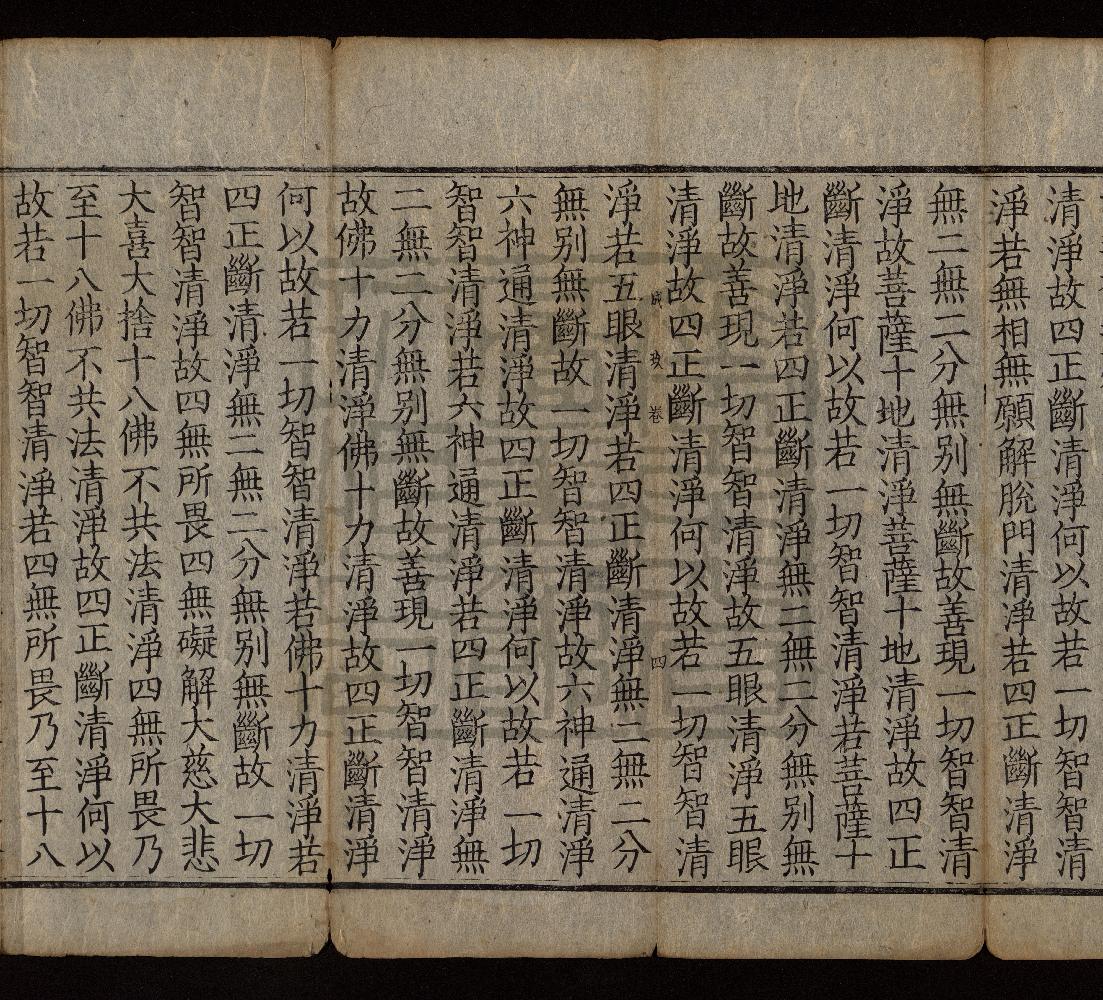 清淨故四正斷清淨何以故若一切智智清
淨若無相無願解脫門清淨若四正斷清淨
無二無二分無別無斷故善現一切智智清
淨故菩薩十地清淨菩薩十地清淨故四正
斷清淨何以故若一切智智清淨若菩薩十
地清淨若四正斷清淨無二無二分無別無
斷故善現一切智智清淨故五眼清淨五眼
清淨故四正斷清淨何以故若一切智智清
淨若五眼清淨若四正斷清淨無二無二分
無別無斷故一切智智清淨故六神通清淨
六神通清淨故四正斷清淨何以故若一切
智智清淨若六神通清淨若四正斷清淨無
二無二分無別無斷故善現一切智智清淨
故佛十力清淨佛十力清淨故四正斷清淨
何以故若一切智智清淨若佛十力清淨若
四正斷清淨無二無二分無別無斷故一切
智智清淨故四無所畏四無礙解大慈大悲
大喜大捨十八佛不共法清淨四無所畏乃
至十八佛不共法清淨故四正斷清淨何以
故若一切智智清淨若四無所畏乃至十八